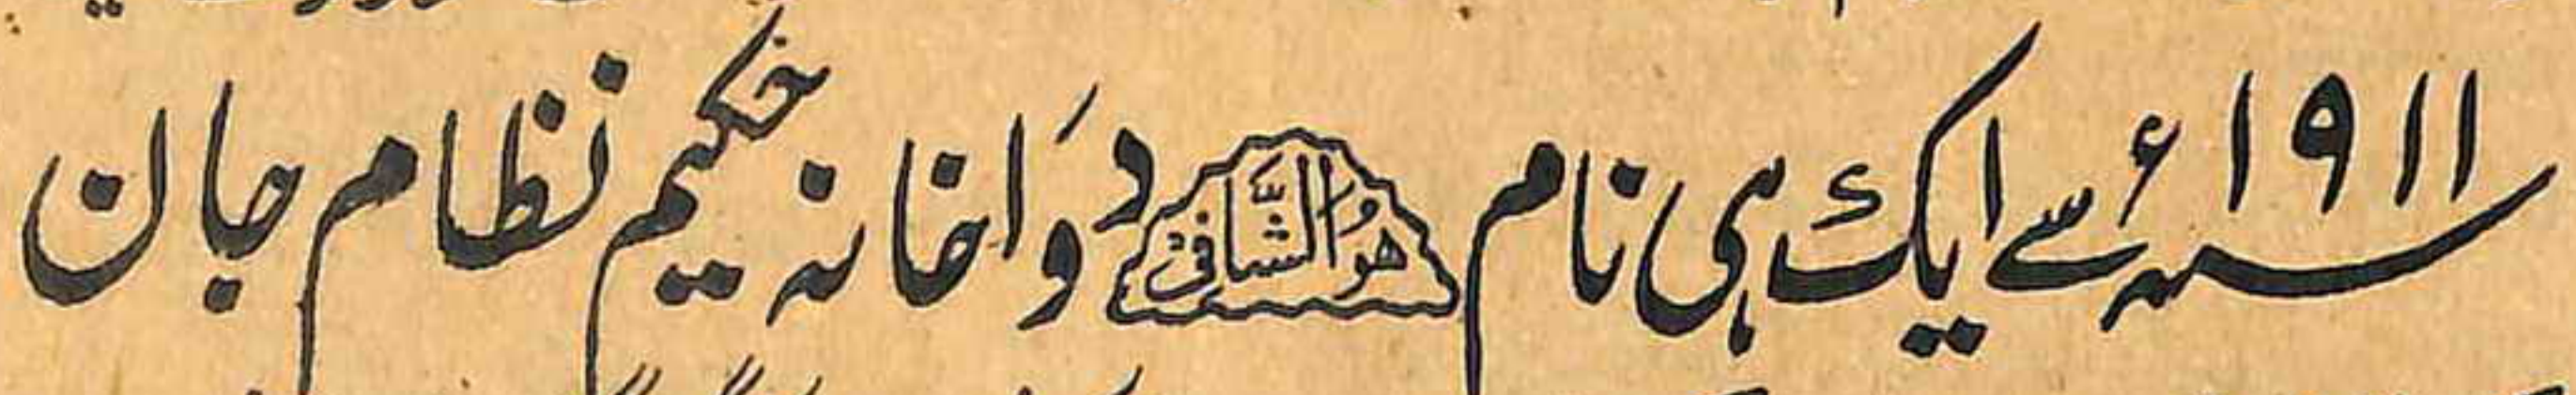 سنہ ۱۹۱۱ء سے ایک ہی نام هُوَ الشَّافِی دَواخانہ حکیم نظام جان